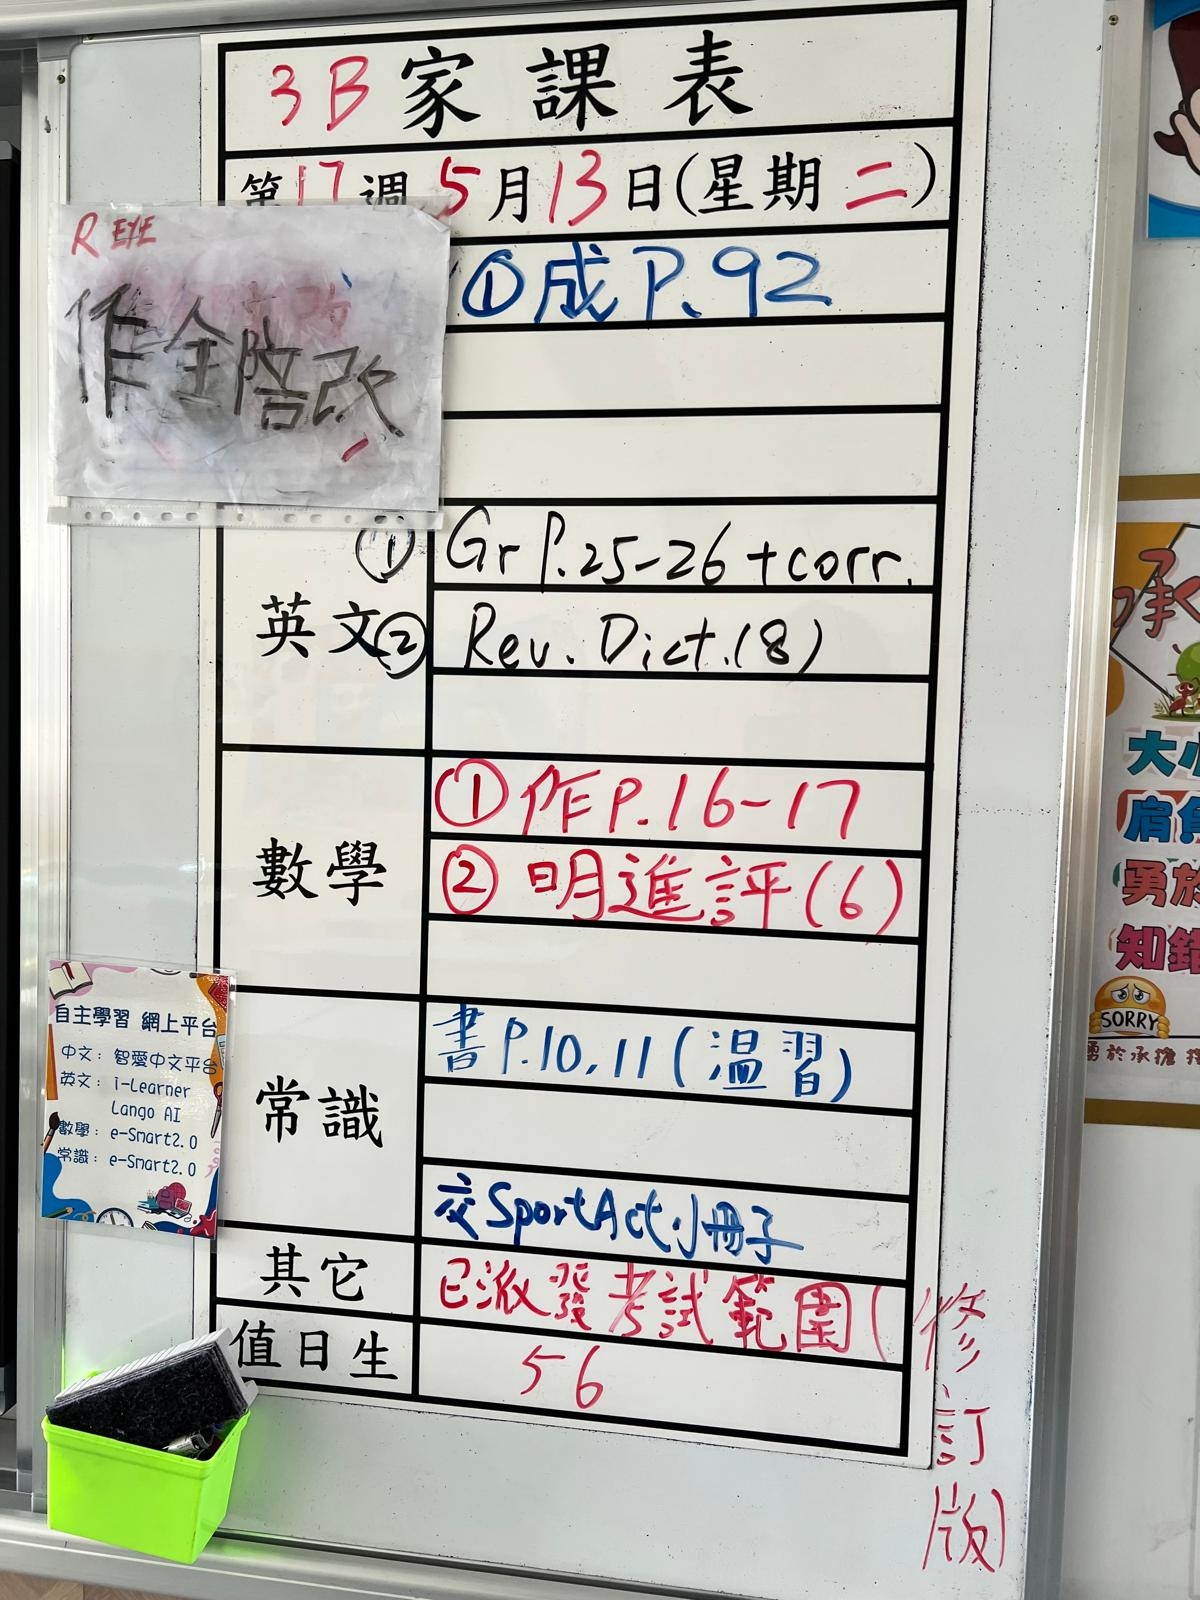 3B 家課表
第17週 5月13日(星期二)
R EYE
作全陪改
①成P.92
英文
① Gr P.25-26 + corr.
② Rev. Dict.(8)
數學
①作P.16-17
②明進評(6)
常識
書P.10,11(溫習)
交SportAct小冊子
其它
已派發考試範圍(修訂版)
值日生
56
自主學習 網上平台
中文：智愛中文平台
英文：i-Learner
Lango AI
數學：e-Smart2.0
常識：e-Smart2.0
承
大小
肩負
勇於
知錯
SORRY
勇於承擔